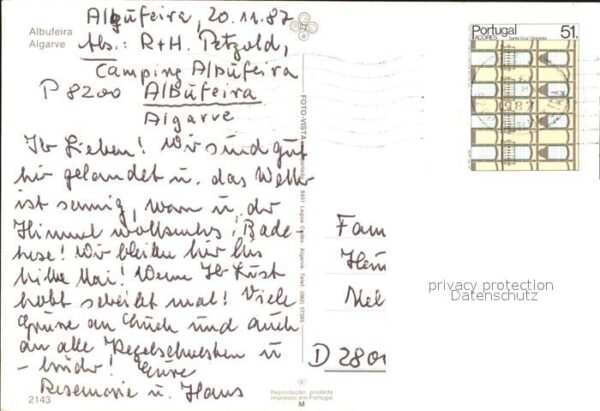 Albufeira
Algarve
Albufeira, 20.11.87
Abs.: R+H. Petzold,
Camping Albufeira
P 8200 Albufeira
Algarve
Ihr Lieben! Wir sind gut
hier gelandet u. das Wetter
ist sonnig, warm u. der
Himmel wolkenlos, Bade-
hose! Wir bleiben hier bis
Mitte Mai! Wenn Ihr Lust
habt schreibt mal! Viele
Grüsse an Euch und auch
an alle Kegelschwestern u
-brüder! Eure
Rosemarie u. Hans
2143
FOTO-VISTA
8401 Lagoa Codex, Algarve, Telef. (082) 57365
Reprodução proibida
Impresso em Portugal
M
Portugal 51.
AÇORES
1987
Fam
Hein
D 2801
privacy protection
Datenschutz